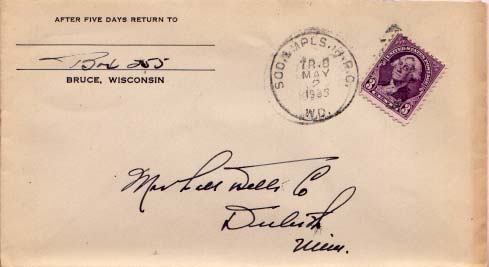 AFTER FIVE DAYS RETURN TO
Box 255
BRUCE, WISCONSIN
SOO & MPLS. R.P.O.
TR.8
MAY
2
1935
W.D.
UNITED STATES POSTAGE
3 CENTS 3
Marshall Wells Co
Duluth
Minn.